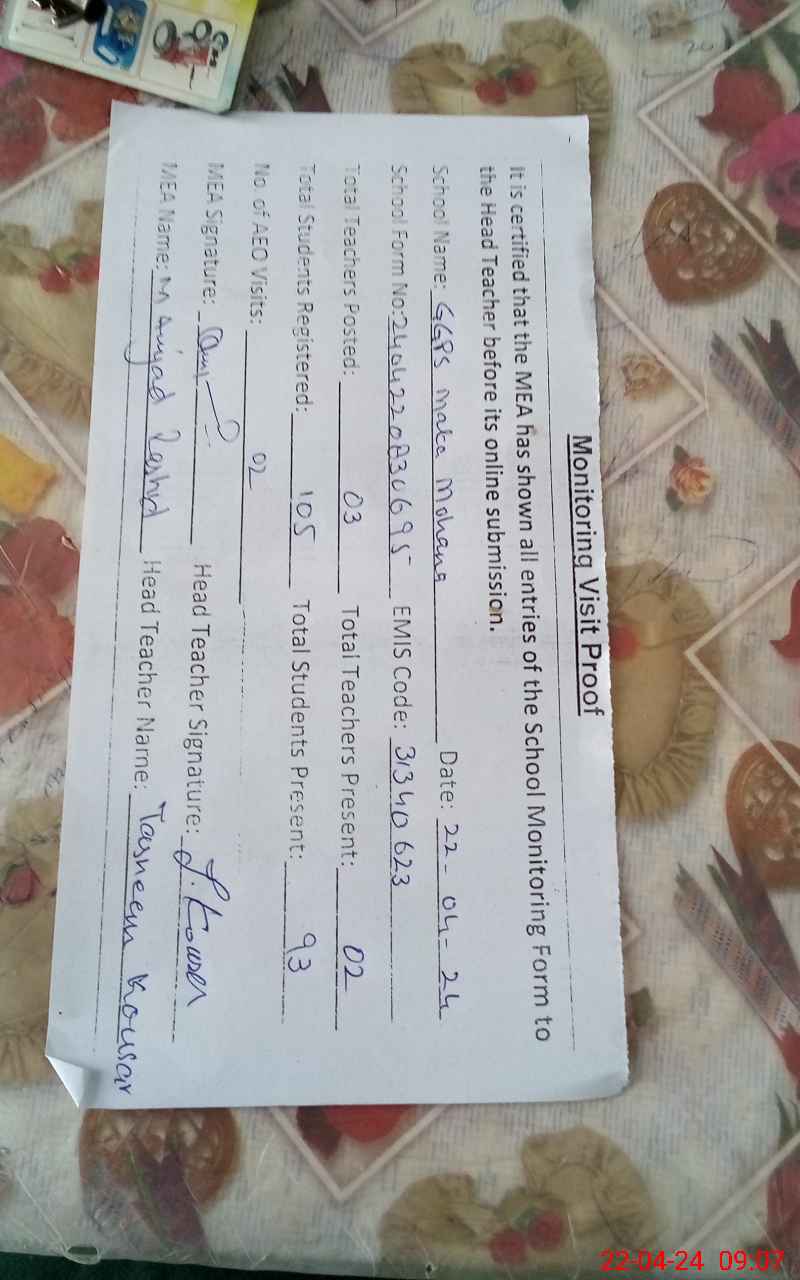 Monitoring Visit Proof
It is certified that the MEA has shown all entries of the School Monitoring Form to
the Head Teacher before its online submission.
School Name: GGPS Maka Mohana Date: 22-04-24
School Form No: 2404220830695 EMIS Code: 31340623
Total Teachers Posted: 03 Total Teachers Present: 02
Total Students Registered: 105 Total Students Present: 93
No. of AEO Visits: 02
MEA Signature: Head Teacher Signature: T. Kousar
MEA Name: M Amjad Rashid Head Teacher Name: Tasneem Kousar
22-04-24 09:07